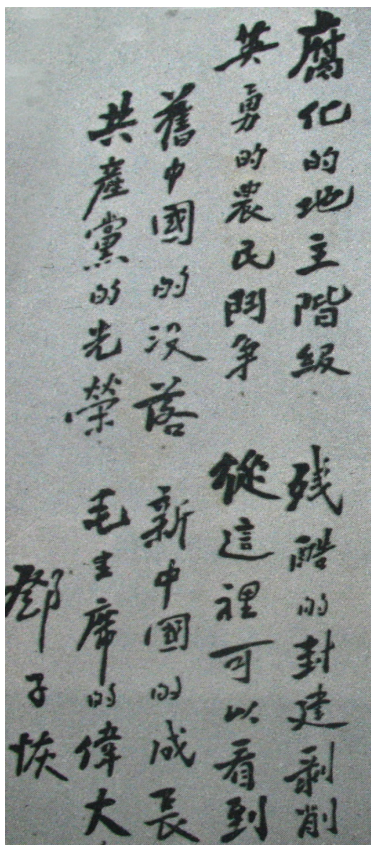 腐化的地主階級 残酷的封建剥削
英勇的農民鬥争 從這裡可以看到
舊中國的没落 新中國的成長
共產黨的光榮 毛主席的偉大
鄧子恢